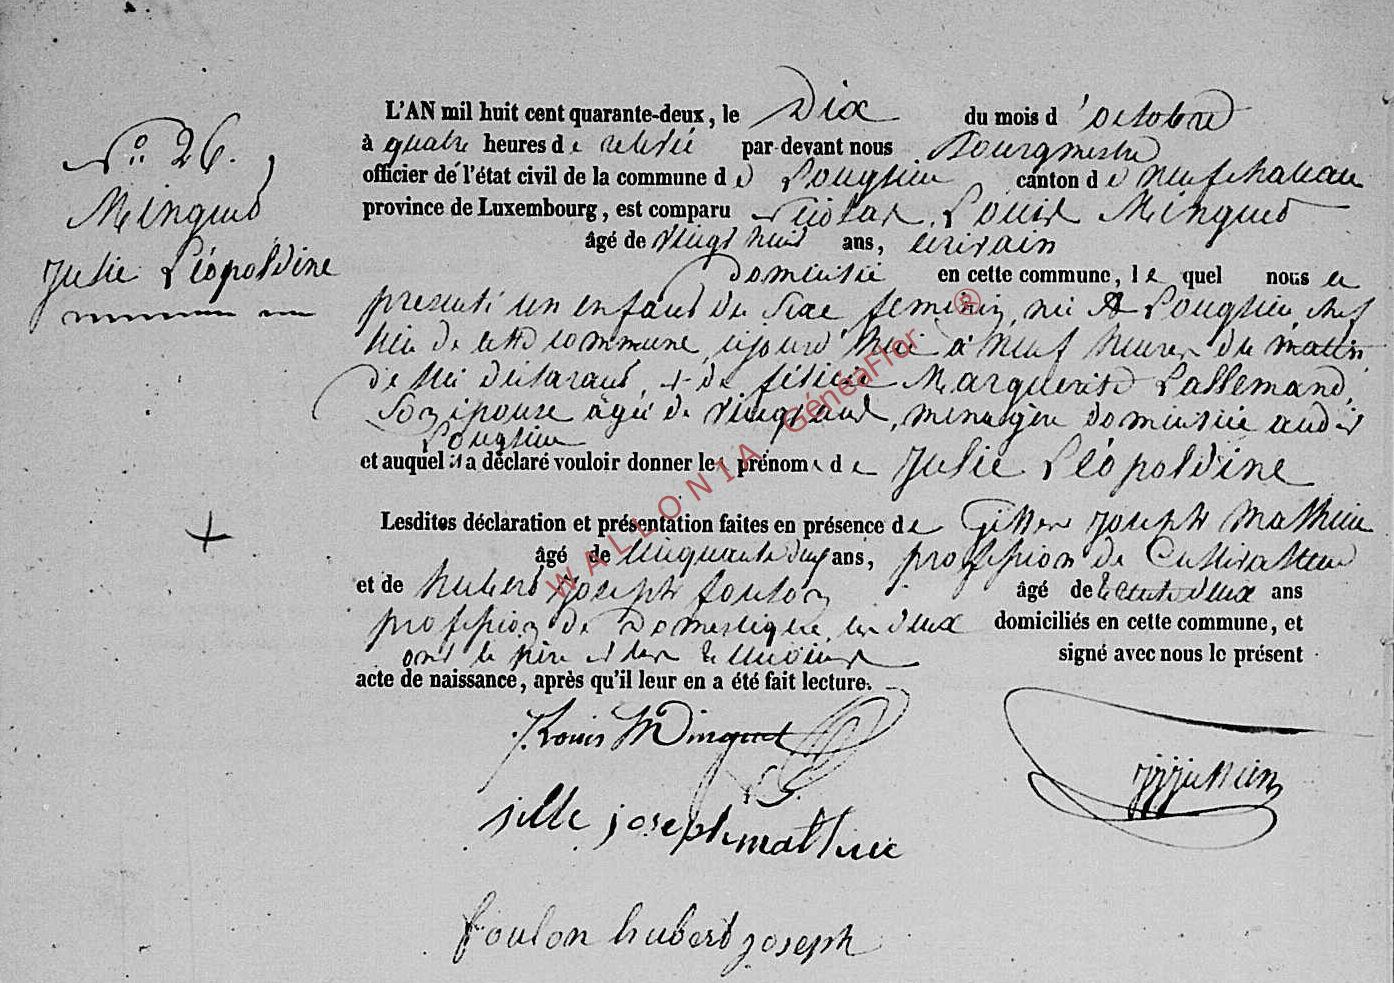 N° 26.
Minguet
Julie Léopoldine
L'AN mil huit cent quarante-deux, le Dix du mois d'octobre
à quatre heures de relevée par-devant nous Bourgmestre
officier de l'état civil de la commune de Longlier canton de Neufchateau
province de Luxembourg, est comparu Nicolas Louis Minguet
âgé de vingt huit ans, écrivain
domicilié en cette commune, lequel nous a
présenté un enfant du sexe feminin, né à Longlier chef
lieu de cette commune, aujourd'hui à neuf heures du matin
de lui déclarant, + de félicie Marguerite Lallemand,
son épouse âgée de vingt ans, ménagère domiciliée audit
Longlier
et auquel il a déclaré vouloir donner les prénoms de Julie Léopoldine
Lesdites déclaration et présentation faites en présence de Joseph Mathieu
âgé de cinquante ans, profession de Cultivateur
et de hubert Joseph foulon âgé de trente deux ans
profession de Domestique, domiciliés en cette commune, et
ont le père et les témoins signé avec nous le présent
acte de naissance, après qu'il leur en a été fait lecture.
Louis Minguet
joseph mathieu
foulon hubert joseph
WALLONIA GénéaFlor ®